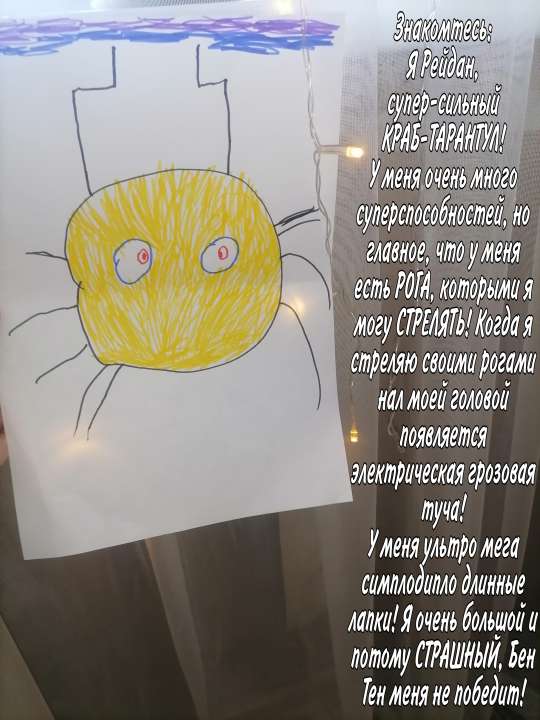 Знакомтесь:
Я Рейдан,
супер-сильный
КРАБ-ТАРАНТУЛ!
У меня очень много
суперспособностей, но
главное, что у меня
есть РОГА, которыми я
могу СТРЕЛЯТЬ! Когда я
стреляю своими рогами
нал моей головой
появляется
электрическая грозовая
туча!
У меня ультро мега
симплодипло длинные
лапки! Я очень большой и
потому СТРАШНЫЙ, Бен
Тен меня не победит!